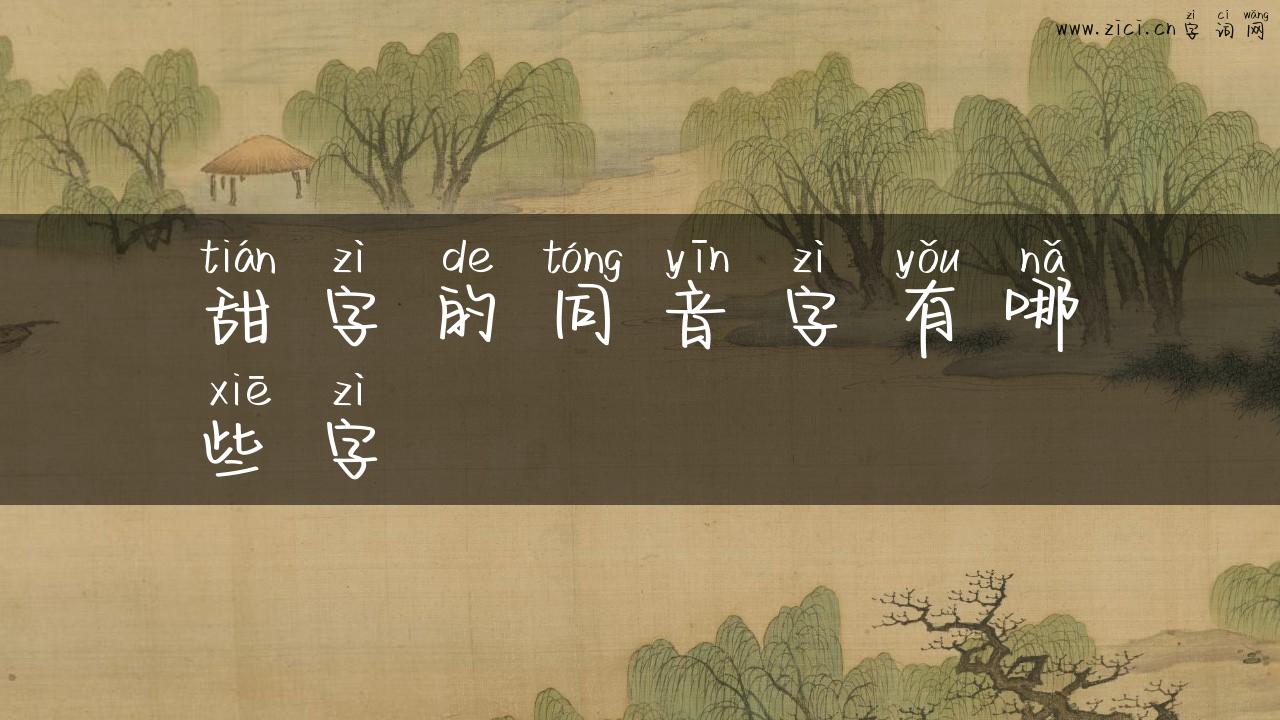 zì cí wǎng
www.zici.cn 字 词 网
tián zì de tóng yīn zì yǒu nǎ
甜 字 的 同 音 字 有 哪
xiē zì
些 字